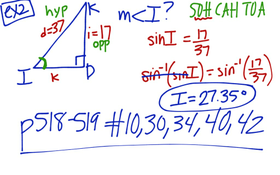 ex2 hyp K m<I? SOH CAH TOA
d=37 i=17 opp sin I = 17/37
I k D sin⁻¹(sin I) = sin⁻¹(17/37)
I = 27.35°
p518-519 #10,30,34,40,42